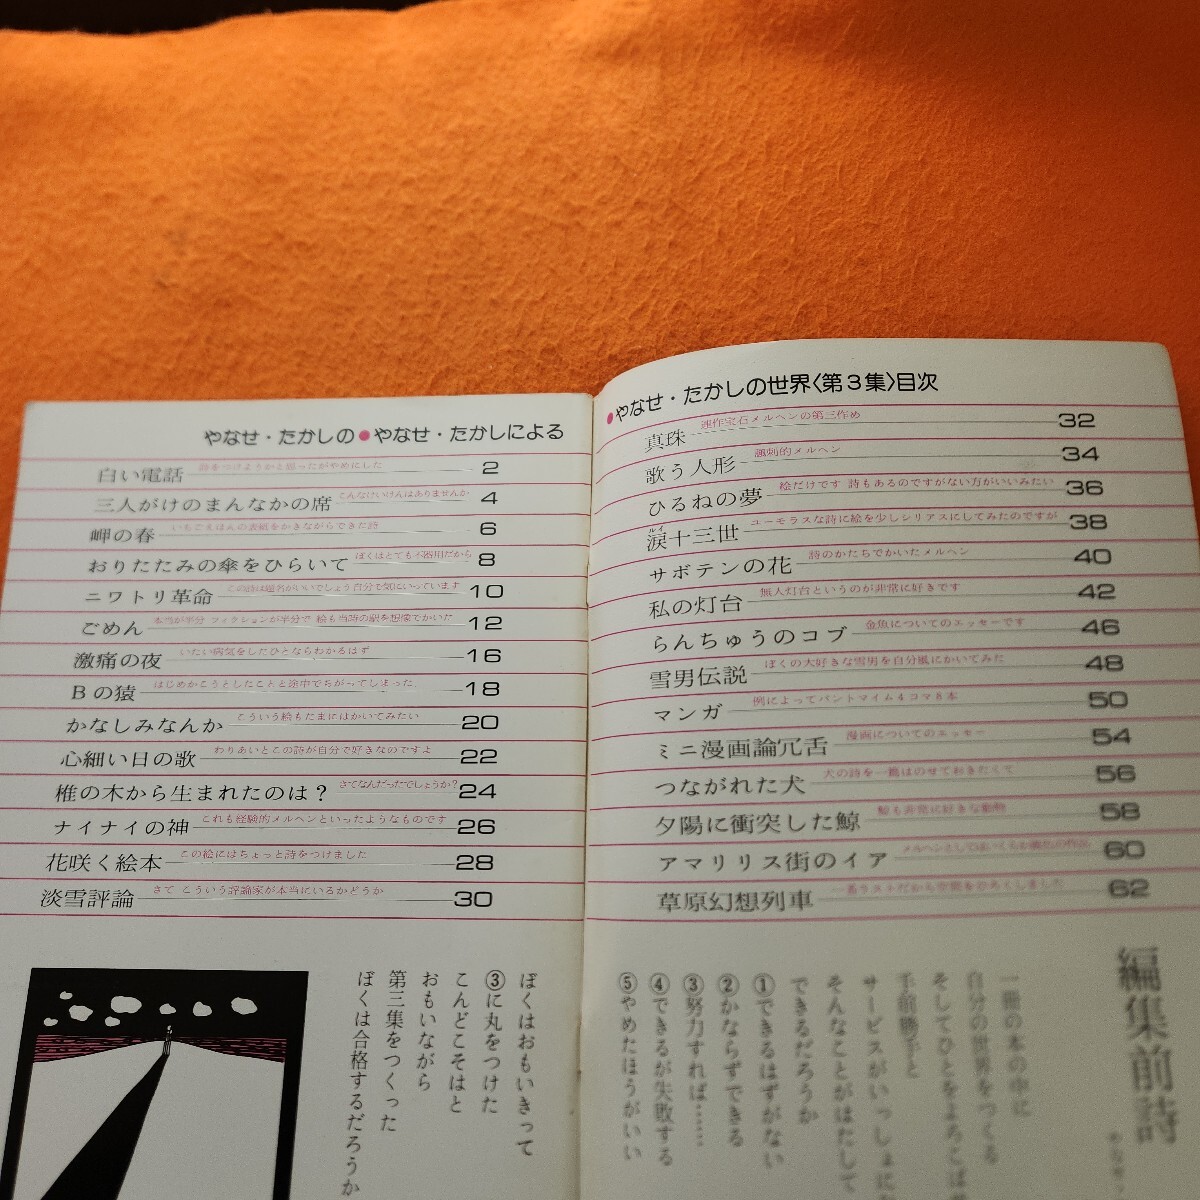 やなせ・たかしの●やなせ・たかしによる
白い電話 詩をつけようかと思ったがやめにした 2
三人がけのまんなかの席 こんなけいけんはありませんか 4
岬の春 いちごえほんの表紙をかきながらできた詩 6
おりたたみの傘をひらいて ぼくはとても不器用だから 8
ニワトリ革命 この詩は題名がいいでしょう自分で気にいっています 10
ごめん 本当が半分 フィクションが半分で 絵も当時の駅を想像でかいた 12
激痛の夜 いたい病気をしたひとならわかるはず 16
Bの猿 はじめかこうとしたことと途中でちがってしまった 18
かなしみなんか こういう絵もたまにはかいてみたい 20
心細い日の歌 わりあいとこの詩が自分で好きなのですよ 22
椎の木から生まれたのは? さてなんだったでしょうか? 24
ナイナイの神 これも経験的メルヘンといったようなものです 26
花咲く絵本 この絵にはちょっと詩をつけました 28
淡雪評論 さて こういう評論家が本当にいるかどうか 30
●やなせ・たかしの世界〈第3集〉目次
真珠 連作宝石メルヘンの第三作め 32
歌う人形 諷刺的メルヘン 34
ひるねの夢 絵だけです 詩もあるのですがない方がいいみたい 36
涙十三世 ルイ ユーモラスな詩に絵を少しシリアスにしてみたのですが 38
サボテンの花 詩のかたちでかいたメルヘン 40
私の灯台 無人灯台というのが非常に好きです 42
らんちゅうのコブ 金魚についてのエッセーです 46
雪男伝説 ぼくの大好きな雪男を自分風にかいてみた 48
マンガ 例によってパントマイム4コマ8本 50
ミニ漫画論冗舌 漫画についてのエッセー 54
つながれた犬 犬の詩を一篇はのせておきたくて 56
夕陽に衝突した鯨 鯨も非常に好きな動物 58
アマリリス街のイア 60
草原幻想列車 62
編集前詩
一冊の本の中に
自分の世界をつくる
そしてひとをよろこば
手前勝手と
サービスがいっしょにな
そんなことがはたして
できるだろうか
①できるはずがない
②かならずできる
③努力すれば……
④できるが失敗する
⑤やめたほうがいい
ぼくはおもいきって
③に丸をつけた
こんどこそはと
おもいながら
第三集をつくった
ぼくは合格するだろうか